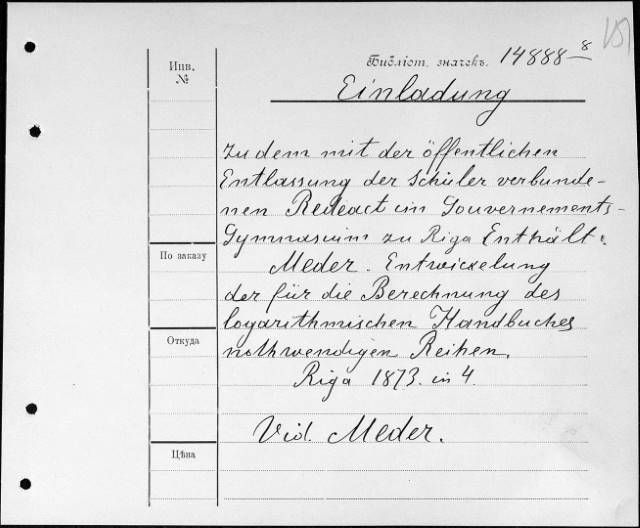 Инв.
№
Библіот. значекъ. 14888 - 8
Einladung
zu dem mit der öffentlichen
Entlassung der Schüler verbunde-
nen Redeact im Gouvernements-
Gymnasium zu Riga Enthält:
Meder. Entwickelung
der für die Berechnung des
logarithmischen Handbuches
nothwendigen Reihen.
Riga 1873. in 4.
Vid. Meder.
По заказу
Откуда
Цѣна